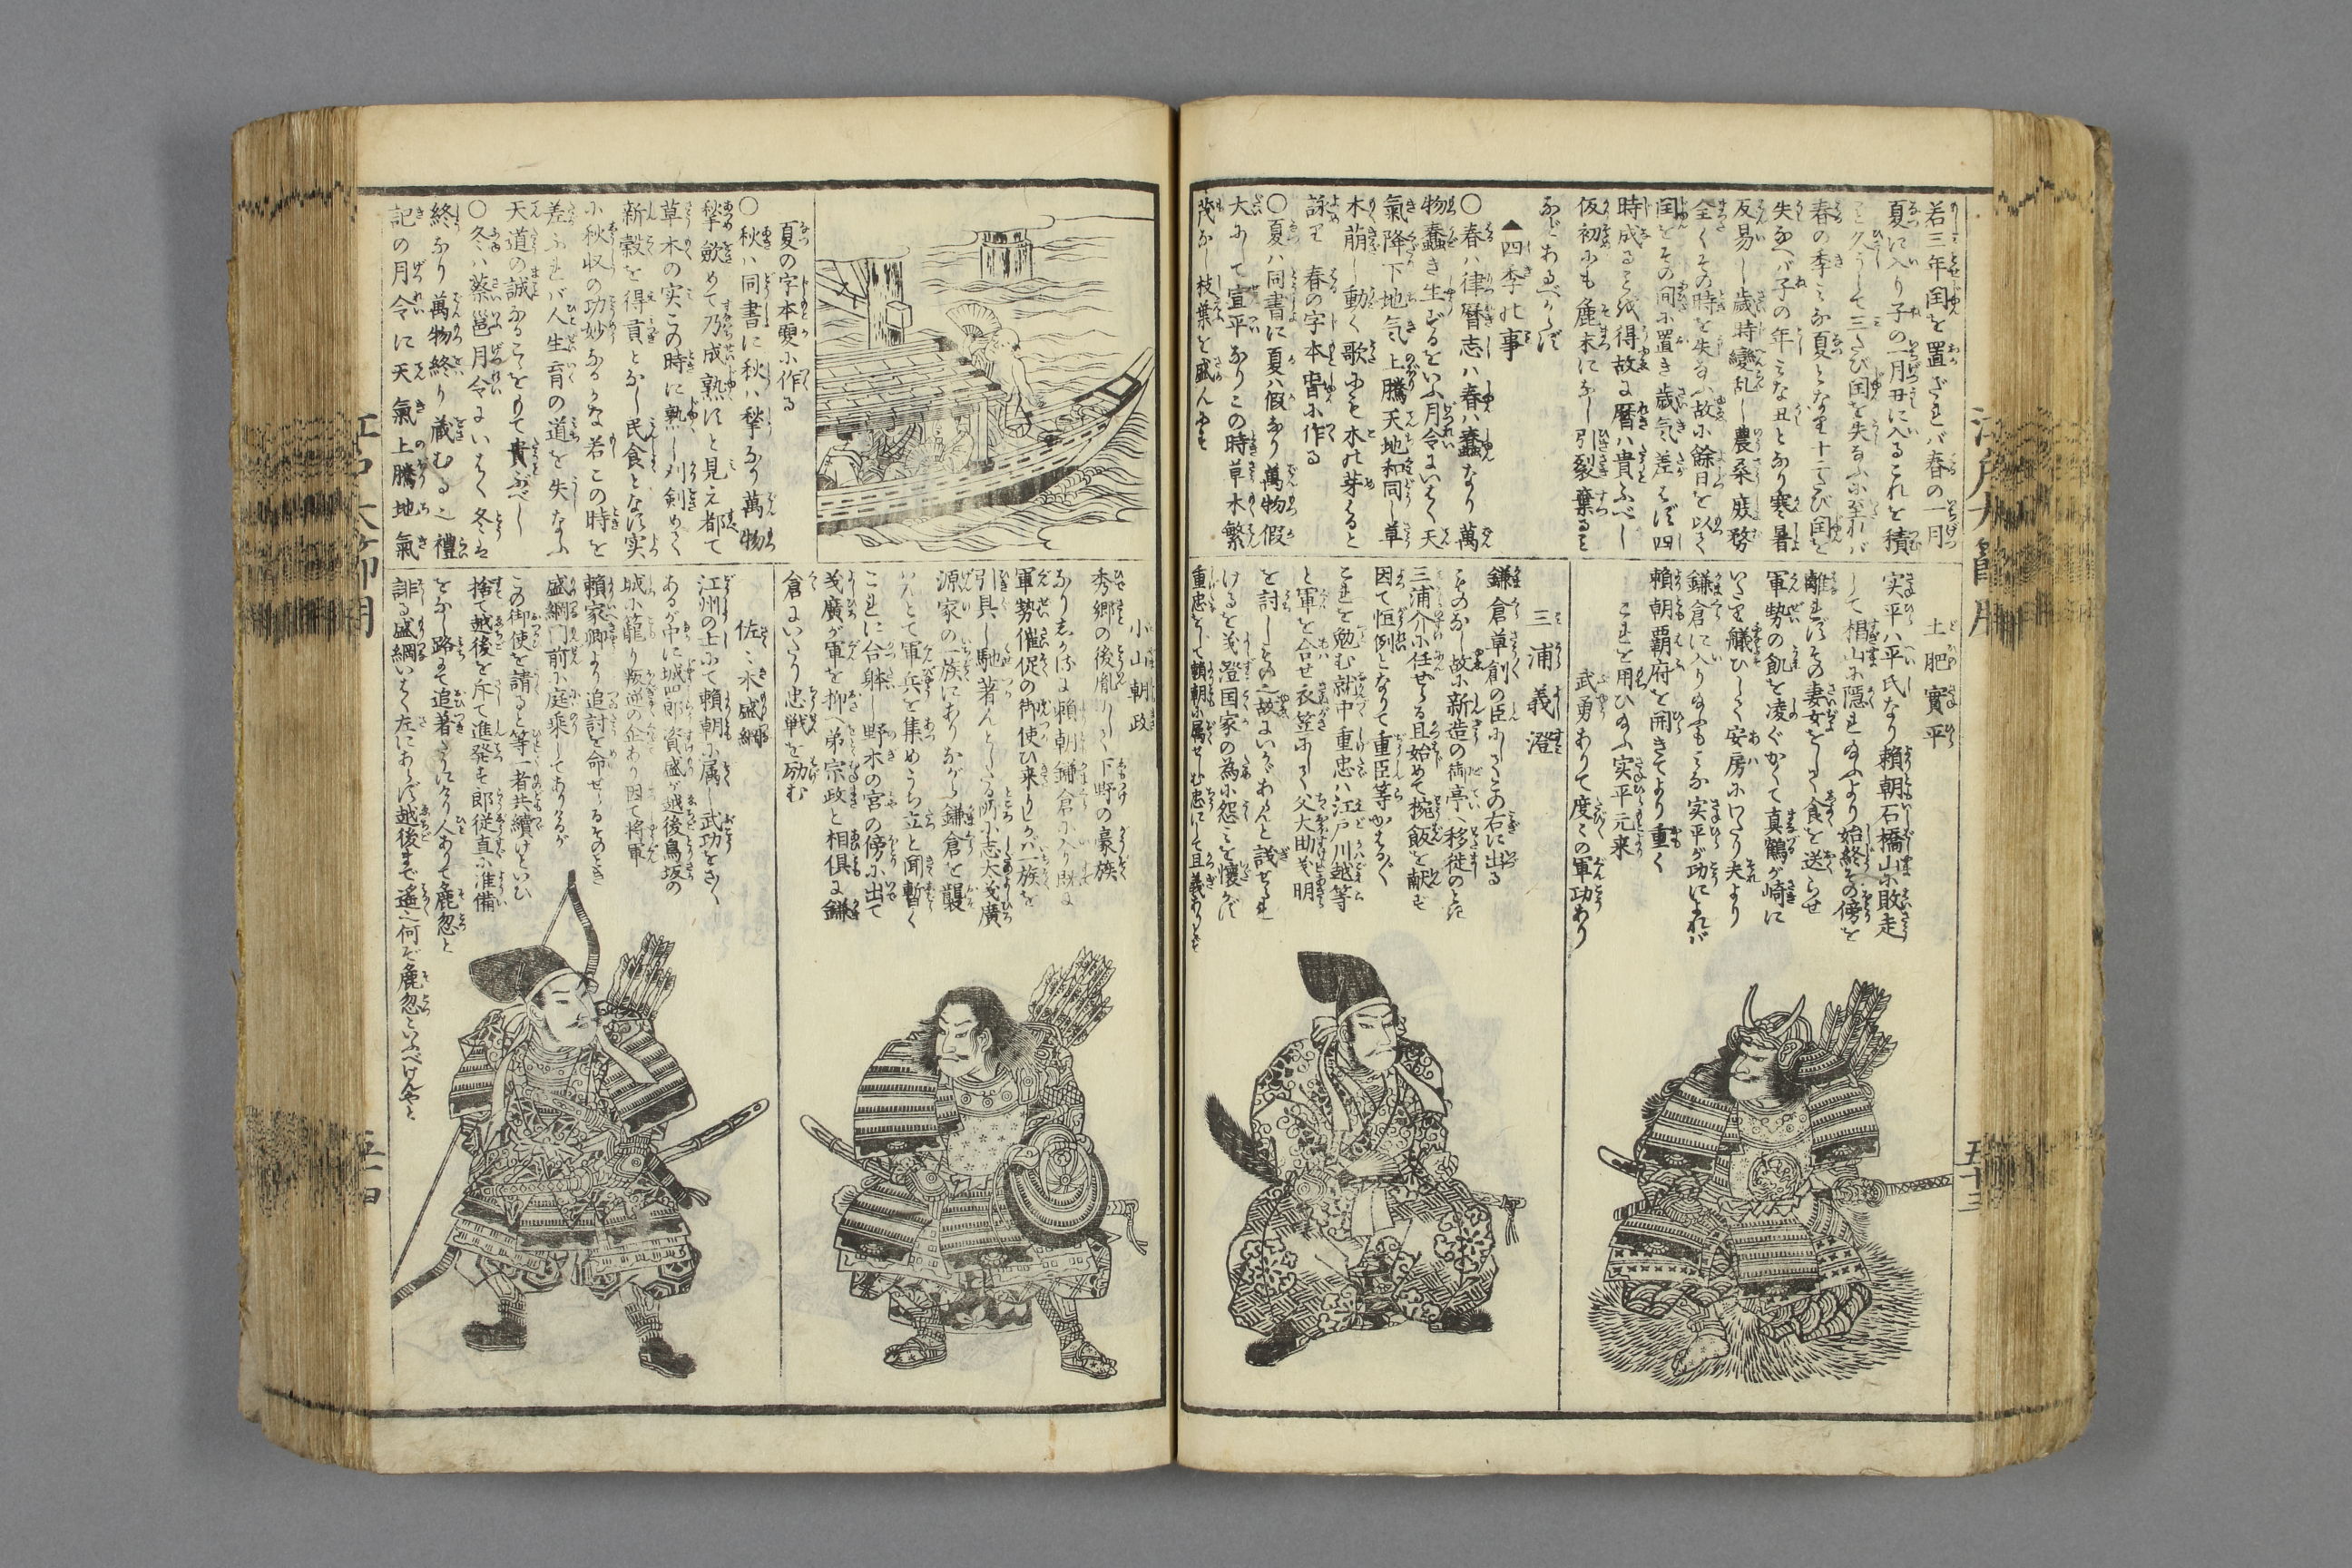 若三年閏を置ざれバ春の一月
夏に入り子の一月丑に入るこれを積
こと久うして三たび閏を失なふに至れバ
春の季みな夏となり十二たび閏を
失なへバ子の年みな丑となり寒暑
反易し歳時變乱し農桑庶務
全くその時を失なふ故に餘日を以て
閏をその間に置き歳氣差はず四
時成ることを得故に暦ハ貴ふべし
仮初にも麁末になし引裂棄ること
などあるべからず
▲四季の事
○春ハ律暦志ハ春ハ蠢なり萬
物蠢き生ずるをいふ月令にいはく天
氣降下地气上騰天地和同し草
木萠し動く歌にも木の芽はると
詠り 春の字本旾に作る
○夏ハ同書に夏ハ假なり萬物假
大にして宣平なりこの時草木繁
茂なし枝葉を盛んにす
土肥實平
実平ハ平氏なり頼朝石橋山に敗走
して椙山に隠れ給ふより始終その傍を
離れずその妻女をして食を送らせ
軍勢の飢を凌ぐかくて真鶴が崎に
いたり艤ひして安房にわたり夫より
鎌倉に入り給ふもみな実平が功によれバ
頼朝覇府を開きてより重く
これを用ひ給ふ実平元来
武勇ありて度々の軍功あり
三浦義澄
鎌倉草創の臣にしてこの右に出る
ものなし故に新造の御亭へ移徙のとき
三浦介に任せらる且始めて椀飯を献ず
因て恒例となりて重臣等かはる〴〵
これを勉む就中重忠ハ江戸川越等
と軍を合せ衣笠にして父大助義明
を討しもの也故にいかゞあらんと議せられ
けるを義澄国家の為に怨ミを懐かず
重忠をして頼朝に属せしむ忠にして且義ありとす
江戸大節用
五十三
夏の字本夓に作る
○秋ハ同書に秋ハ揫なり萬物
揫斂めて乃成熟すと見え都て
草木の実この時に熟し刈剣めて
新穀を得貢となし民食となす実
に秋収の功妙なるかな若この時を
差ふれバ人生育の道を失なふ
天道の誠なることをもて貴ぶべし
○冬ハ蔡邕月令にいはく冬は
終なり萬物終り蔵むる也禮
記の月令に天氣上騰地氣
小山朝政
秀郷の後胤にして下野の豪族
なりしかるに頼朝鎌倉に入り既に
軍勢催促の御使ひ来りしかバ一族を
引具し馳著んとしたる所に志太義廣
源家の一族にありながら鎌倉を襲
んとて軍兵を集めうち立と聞暫く
これに合躰し野木の宮の傍に出て
義廣が軍を抑へ弟宗政と相倶に鎌
倉にいたり忠戦を励む
佐々木盛綱
江州の士にて頼朝に属し武功多く
あるが中に城四郎資盛が越後鳥坂の
城に籠り叛逆の企あり因て将軍
頼家卿より追討を命せらるそのとき
盛綱門前に庭乗してありけるが
この御使を請ると等し者共續けといひ
捨て越後を斥て進発す郎従直に准備
をなし路にて追著たりけり人ありて麁忽と
誹る盛綱いはく左にあらず越後まで遙々何ぞ麁忽といふべけんやと
江戸大節用
五十四